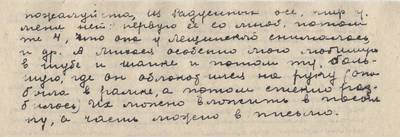 пожалуйста, из Радусиных все, пир у
меня нет: первую ее со мной, потом
те 4, что она у Лещинской снималась
и др. А мисаея особенно мою любимую
в шубе и шапке и потом ту, боль-
шую, где он облокотился на руку (она
была в рамке, а потом стекло раз-
билось) Их можно вложить в посыл-
ку, а часть можно в письмо.